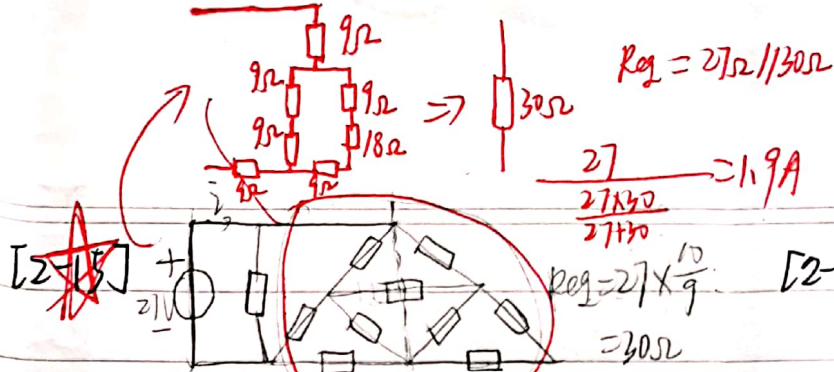 9Ω
9Ω 9Ω
9Ω 18Ω
9Ω 9Ω
⇒ 30Ω
Req = 27Ω//30Ω
27 / (27×30 / 27+30) = 1.9A
i
[2-15]
+
27V
-
Req = 27 × 10/9
= 30Ω
[2-